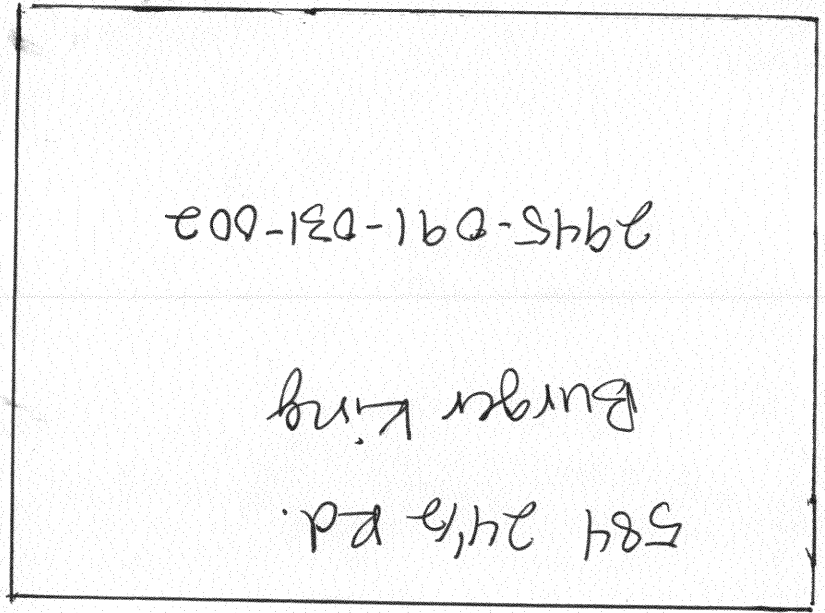 584 24 1/2 Rd.
Burger King
2945-091-031-002